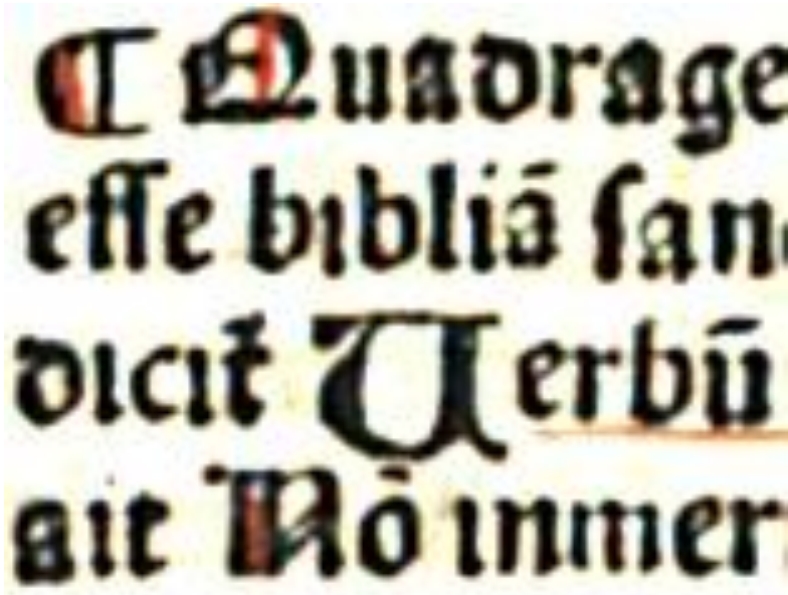 ¶ Quadrage
eſſe bibliā ſan
dicit̄ Uerbū
ait Nō inmer